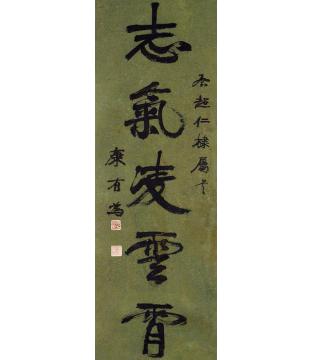 志氣凌雲霄
超仁棣屬
康有為